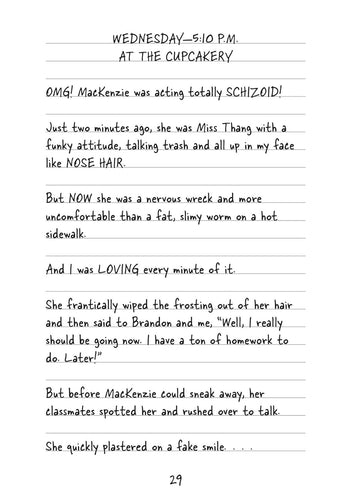 WEDNESDAY—5:10 P.M.
AT THE CUPCAKERY
OMG! MacKenzie was acting totally SCHIZOID!
Just two minutes ago, she was Miss Thang with a
funky attitude, talking trash and all up in my face
like NOSE HAIR.
But NOW she was a nervous wreck and more
uncomfortable than a fat, slimy worm on a hot
sidewalk.
And I was LOVING every minute of it.
She frantically wiped the frosting out of her hair
and then said to Brandon and me, “Well, I really
should be going now. I have a ton of homework to
do. Later!”
But before MacKenzie could sneak away, her
classmates spotted her and rushed over to talk.
She quickly plastered on a fake smile. . . .
29